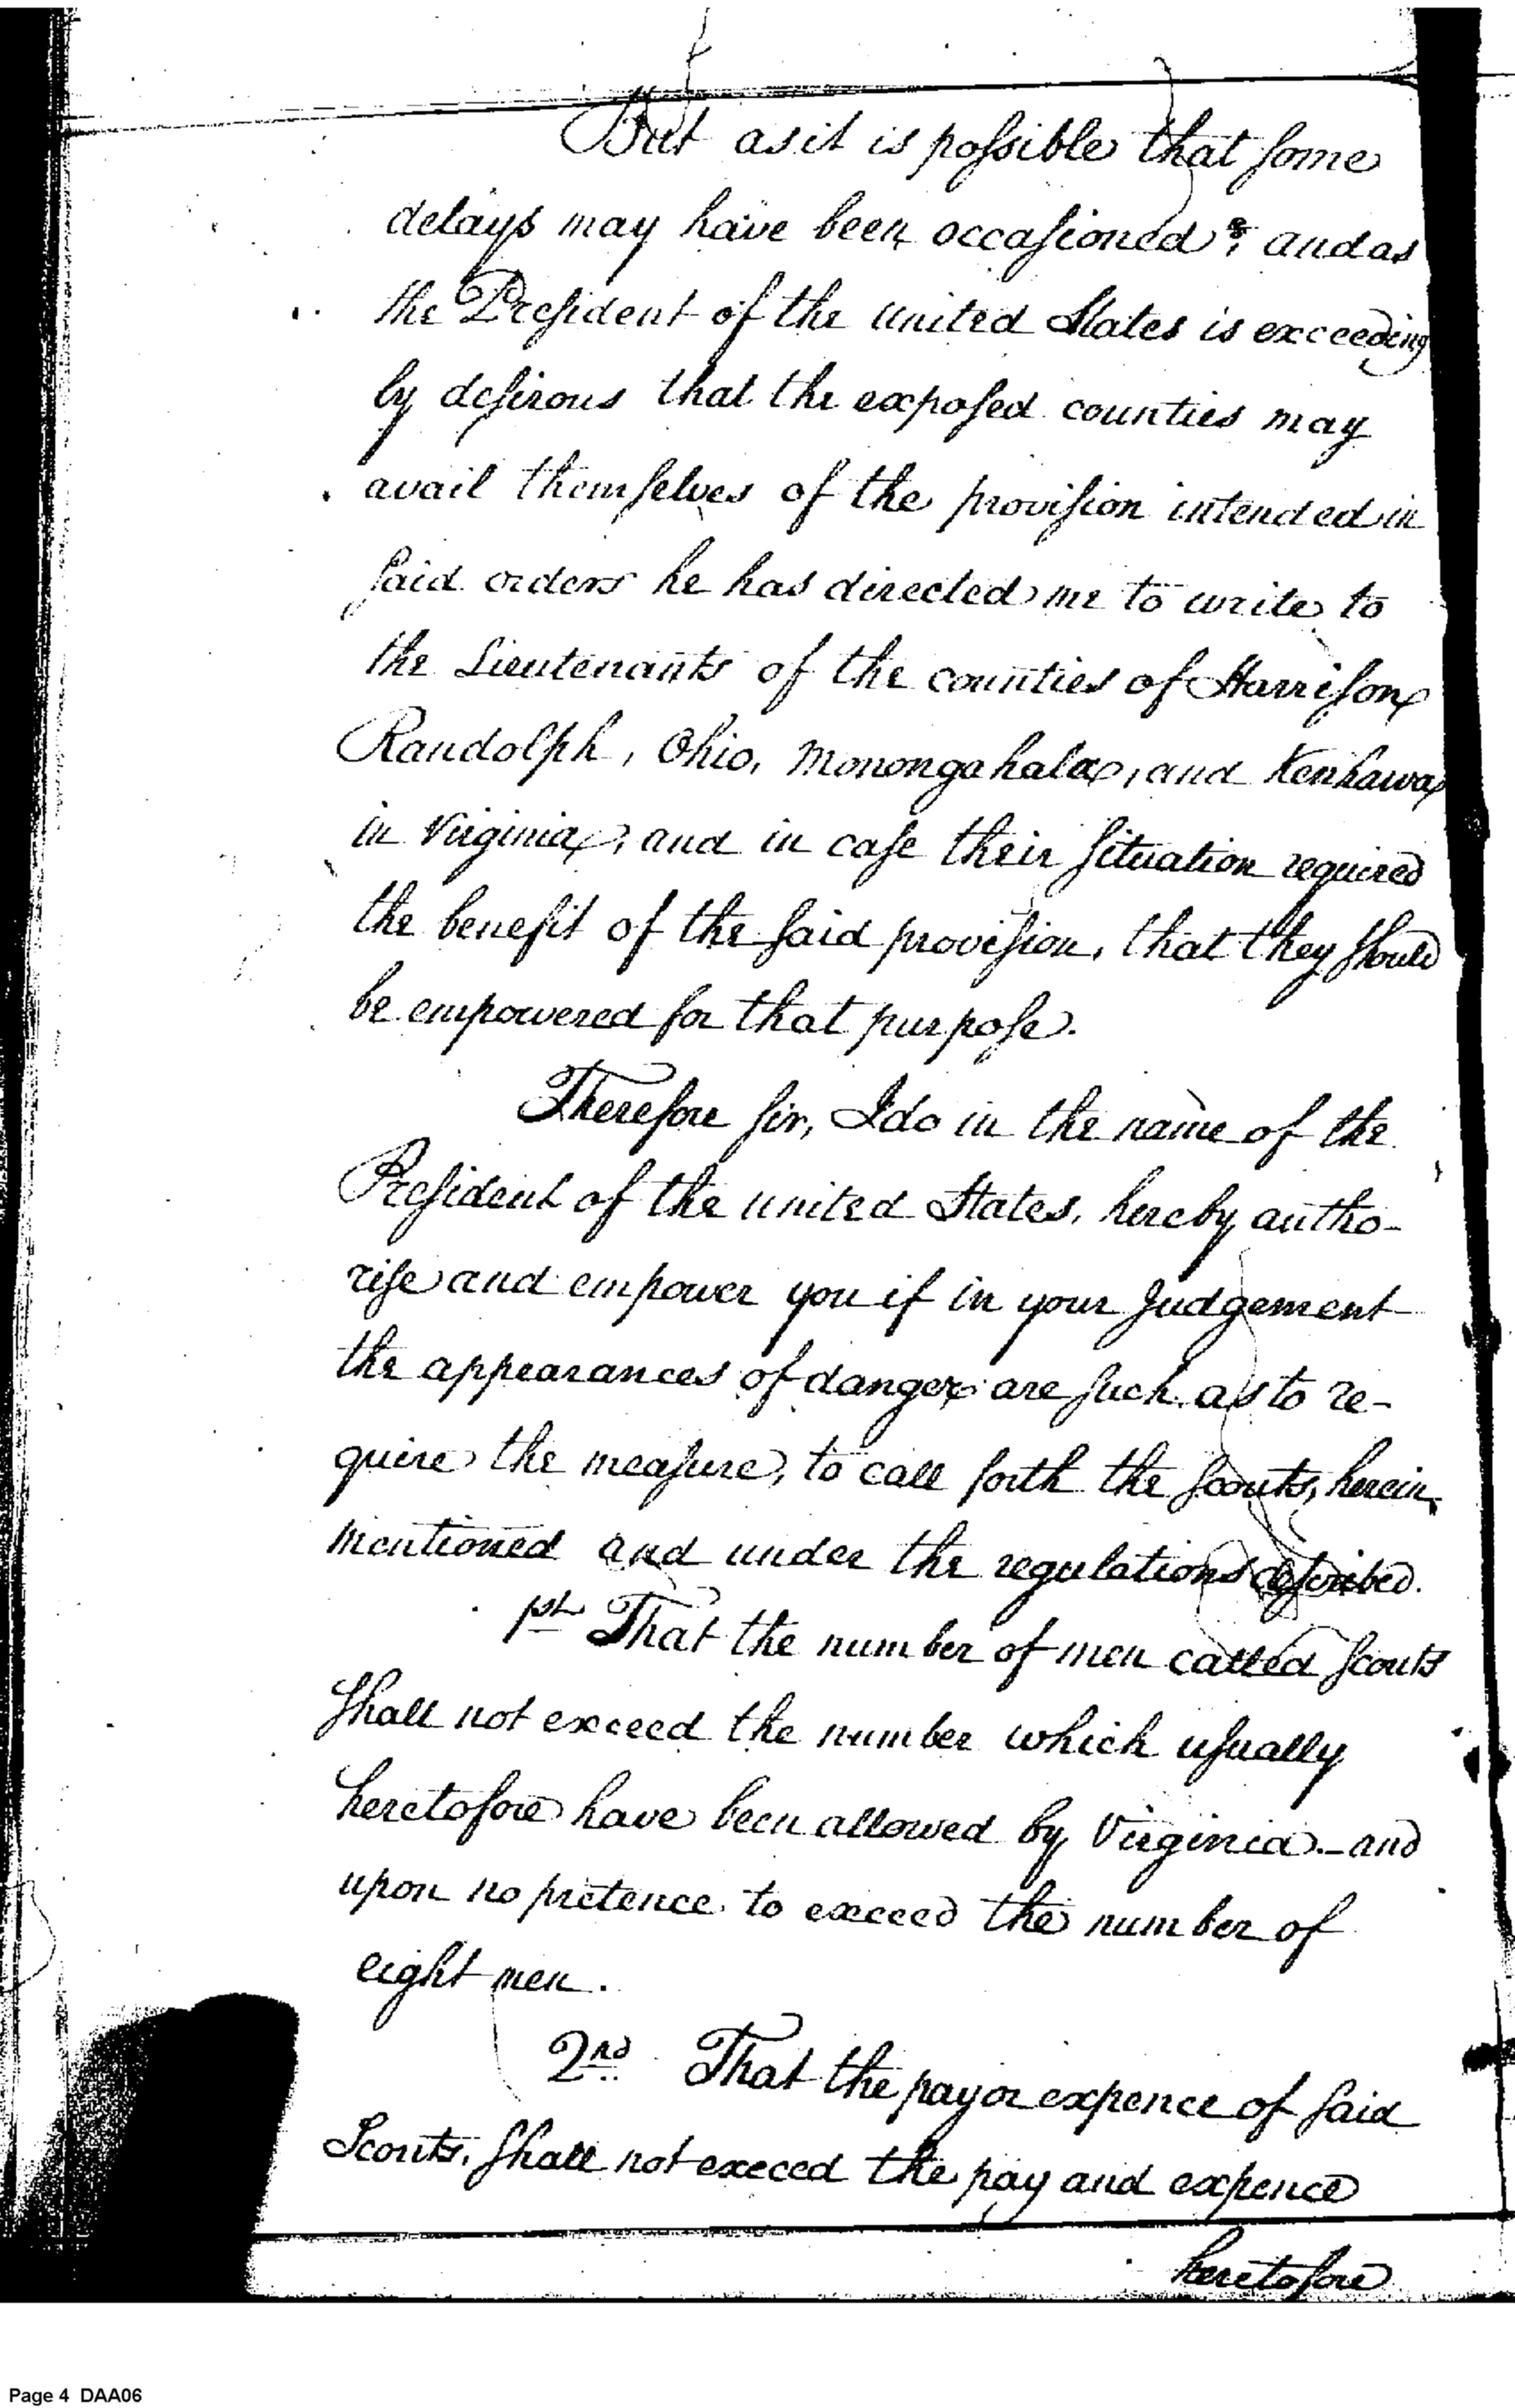 But as it is possible that some
delays may have been occasioned; and as
the President of the united States is exceeding
ly desirous that the exposed counties may
avail themselves of the provision intended in
said orders he has directed me to write to
the Lieutenants of the counties of Harrison
Randolph, Ohio, Monongahala, and Kenhawa
in Virginia, and in case their situation required
the benefit of the said provision, that they should
be empowered for that purpose.
Therefore sir, I do in the name of the
President of the united States, hereby autho-
rise and empower you if in your judgement
the appearances of danger are such as to re-
quire the measure, to call forth the scouts, herein
mentioned and under the regulations described.
1st That the number of men called scouts
shall not exceed the number which usually
heretofore have been allowed by Virginia.—and
upon no pretence to exceed the number of
eight men.
2nd That the pay or expence of said
Scouts, shall not exceed the pay and expence
heretofore
Page 4 DAA06